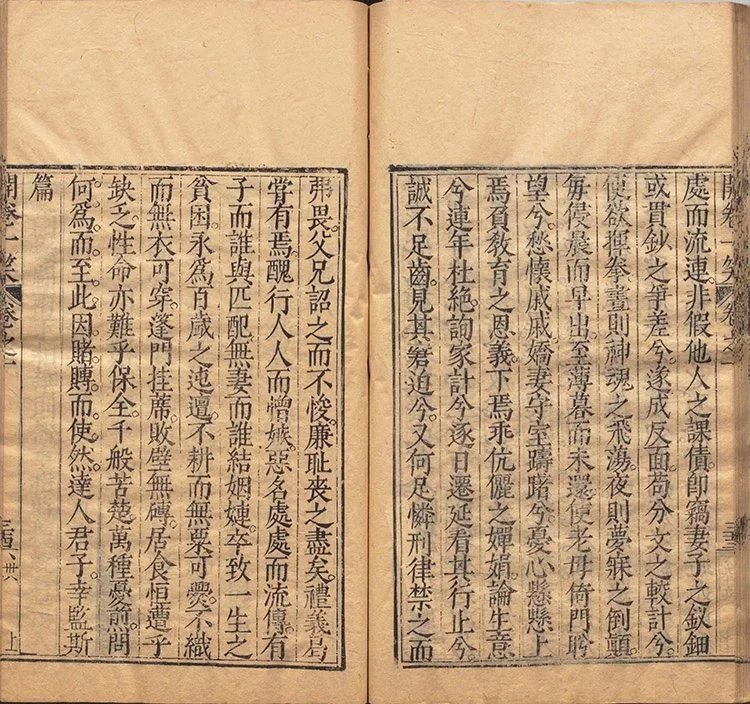 開卷一笑 卷之一
處而流連。非假他人之課債。即竊妻子之釵鈿
或貫鈔之爭差兮。遂成反面。苟分文之較計兮。
便欲揮拳。晝則神魂之飛蕩。夜則夢寐之倒顛。
每侵晨而早出。至薄暮而未還。使老母倚門盻
望兮。愁懷戚戚。嬌妻守室躊躇兮。憂心懸懸。上
焉負教育之恩義。下焉乖伉儷之嬋娟。論生意
兮連年杜絕。詢家計兮逐日遷延。看其行止兮。
誠不足齒。見其窘迫兮。又何足憐。刑律禁之而
弗畏。父兄詔之而不悛。廉恥喪之盡矣。禮義曷
嘗有焉。醜行人人而憎嫉。惡名處處而流傳。有
子而誰與匹配。無妻而誰結姻婕。卒致一生之
貧困。永爲百歲之迍邅。不耕而無粟可爨。不織
而無衣可穿。蓬門挂蓆。敗壁無磚。居食恒遭乎
缺乏。性命亦難乎保全。千般苦楚。萬種憂煎。問
何爲而至此。因賭賻而使然。達人君子。幸監斯
篇
開卷一笑 卷之一 上